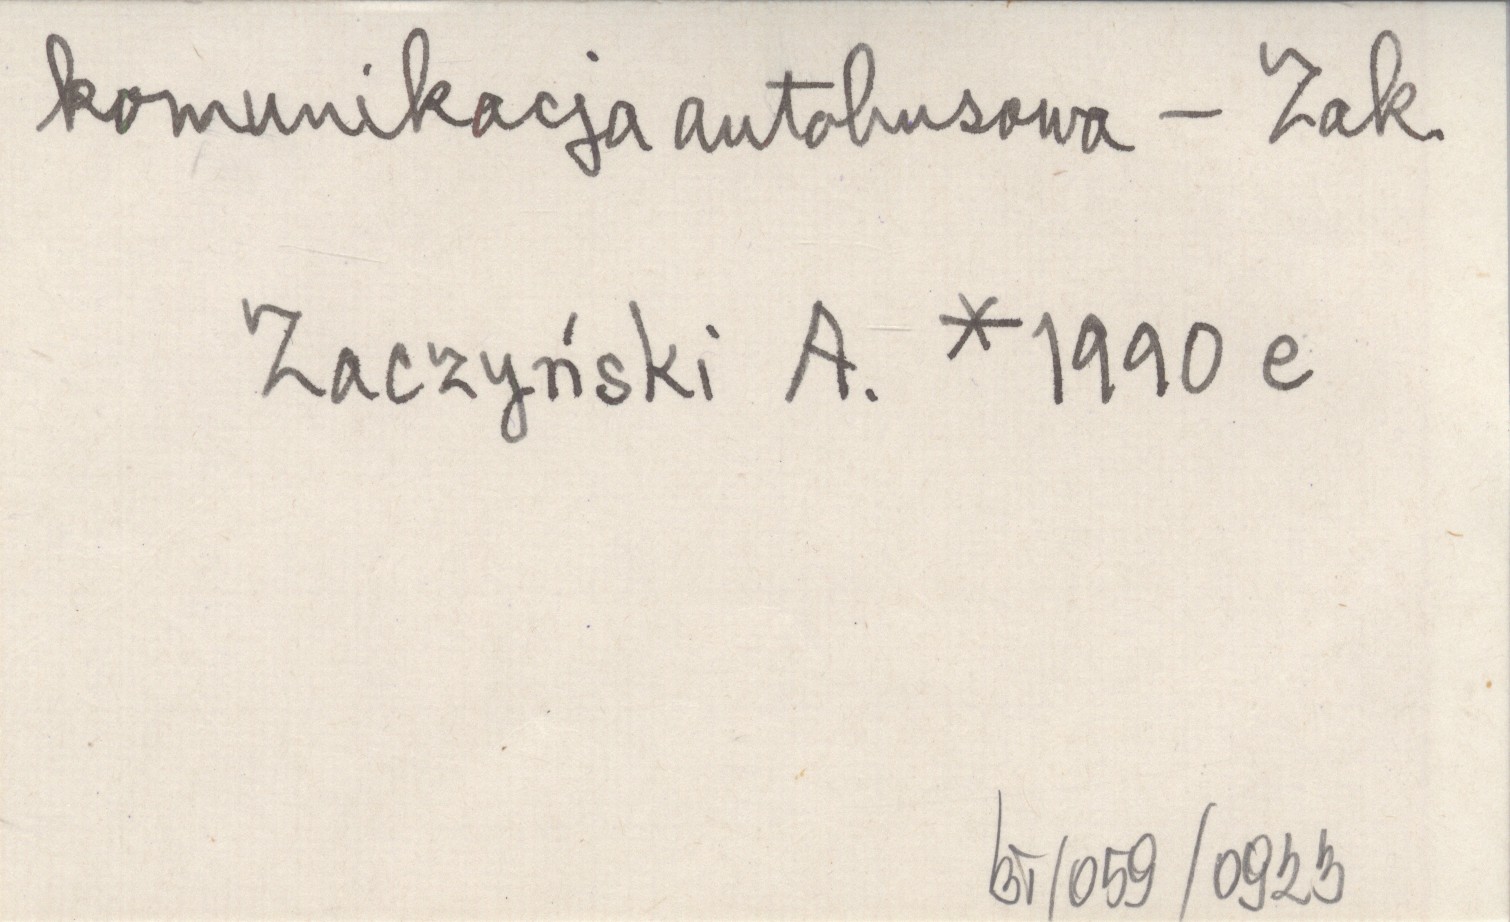 komunikacja autobusowa – Zak.
Zaczyński A. *1990 e
/059/0923